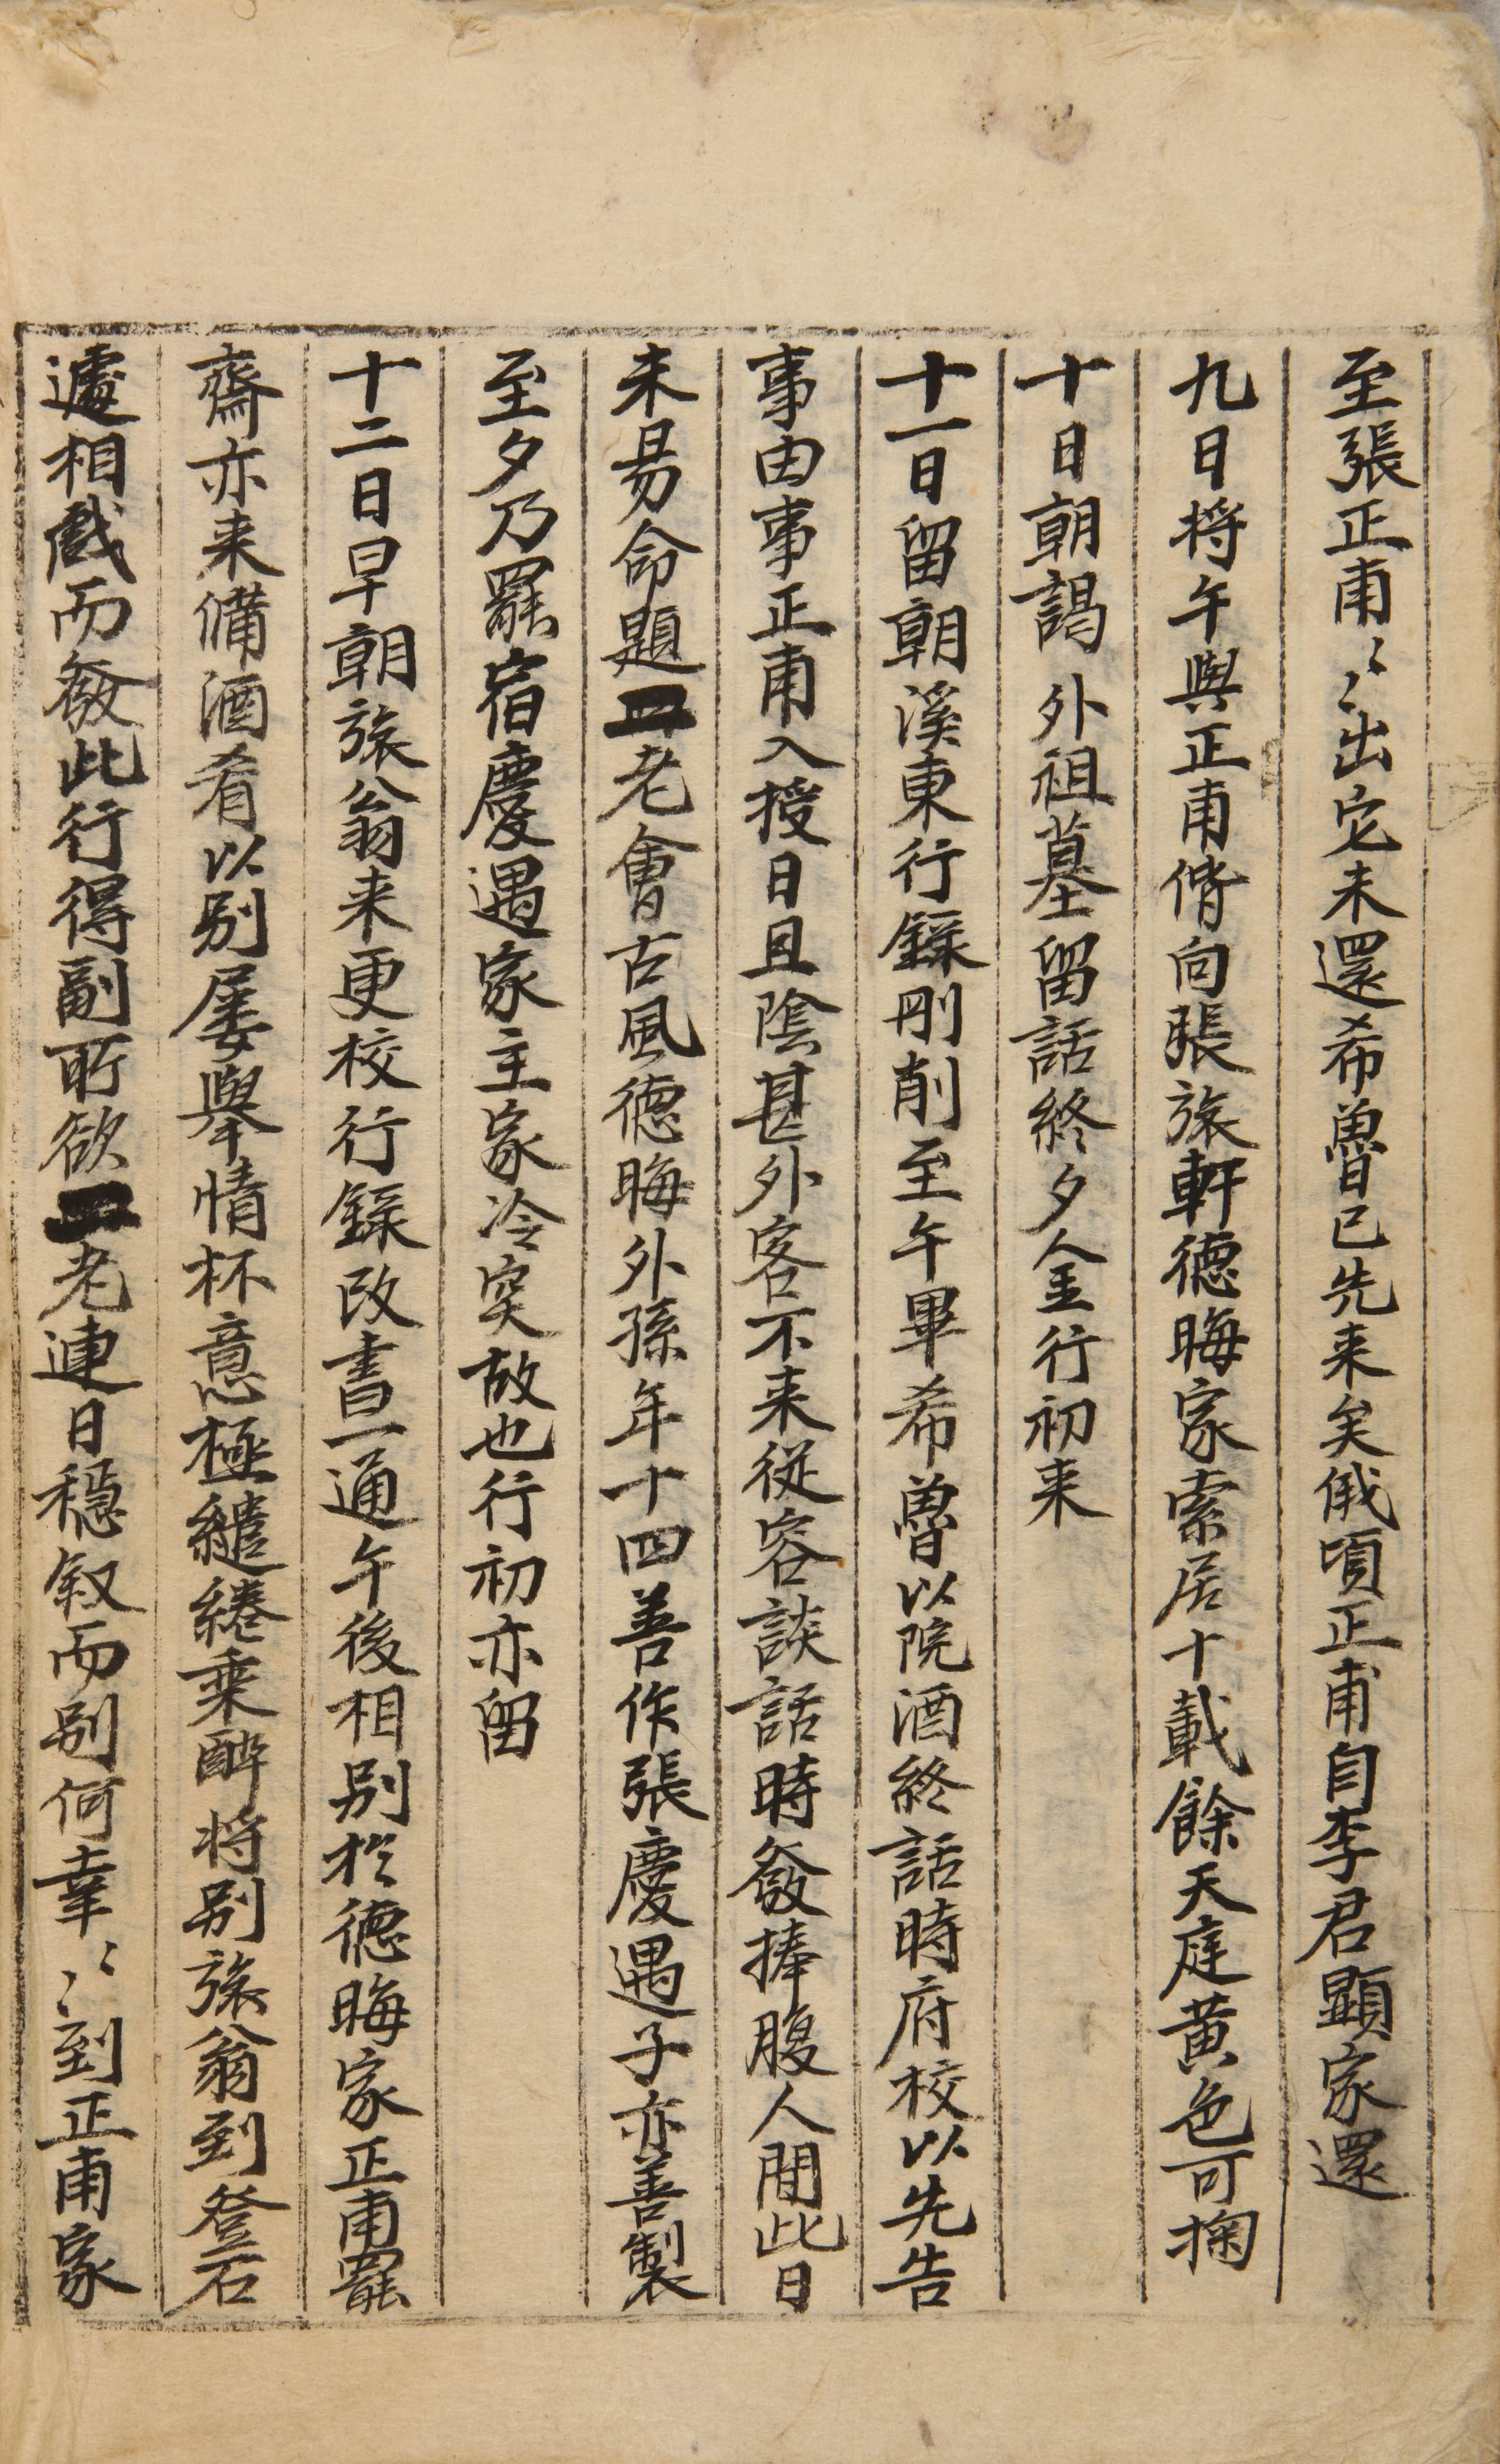 至張正甫〻〻出它未還希魯已先来矣俄頃正甫自李君顯家還
九日将午與正甫偕向張旅軒德晦家索居十載餘天庭黄色可掬
十日朝謁外祖墓留話終夕金行初来
十一日留朝溪東行録刪削至午畢希魯以院酒終話時府校以先告
事由事正甫入授日且陰甚外客不来從容談話時發捧腹人間此日
未易命題四老會古風德晦外孫年十四善作張慶遇子亦善製
至夕乃罷宿慶遇家主家冷突故也行初亦留
十二日早朝旅翁来更校行録改書一通午後相別於德晦家正甫罷
齋亦来備酒肴以别屡舉情杯意極繾綣乗醉将别旅翁到登石
遽相戲而發此行得副所欲四老連日穩叙而别何幸〻〻到正甫家